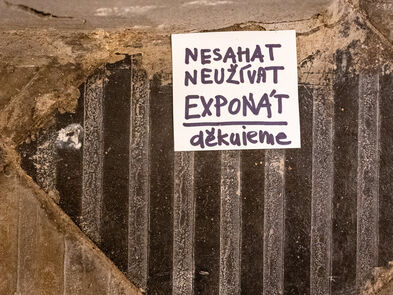 NESAHAT
NEUŽÍVAT
EXPONÁT
děkujeme